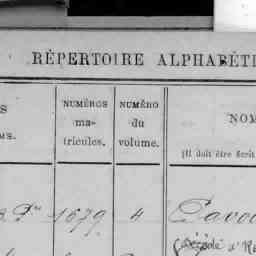 RÉPERTOIRE ALPHABÉTI
S
MS.
NUMÉROS
ma-
tricules.
NUMÉRO
du
volume.
NOM
(Il doit être écrit
1679 4
décédé à